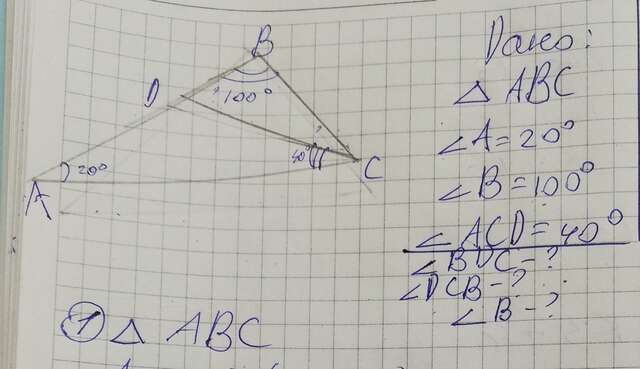 B
D
100°
40°
C
20°
A
Дано:
△ ABC
∠A=20°
∠B=100°
∠ACD=40°
∠BDC-?
∠DCB-?
∠B-?
① △ ABC